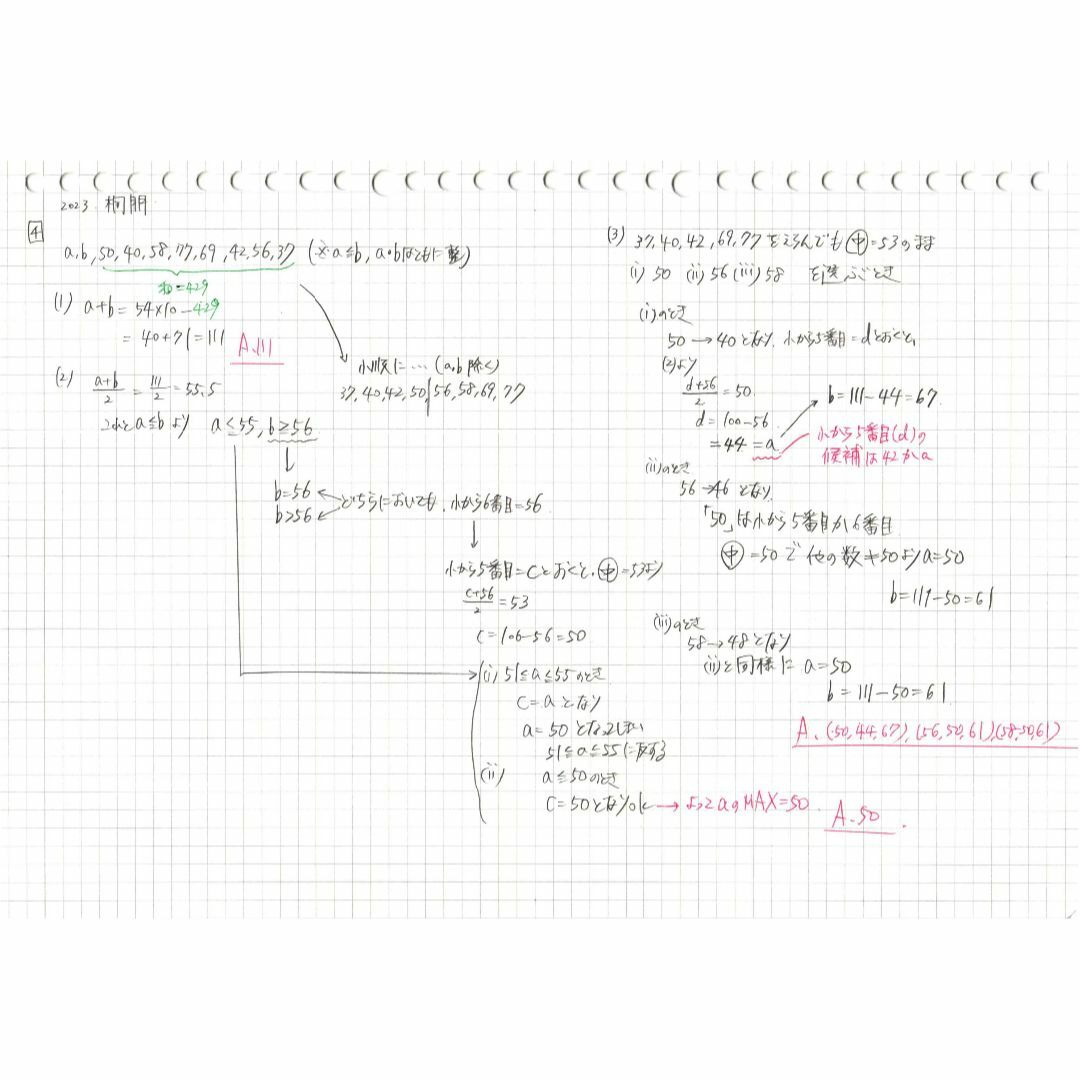 2023 桐朋
4
a,b,50,40,58,77,69,42,56,37 (※a≦b, a・bはともに整)
和=429
(1) a+b = 54×10-429
= 40+71=111
A.111
小順に…(a,b除く)
37,40,42,50|56,58,69,77
(2) a+b/2 = 111/2 = 55.5
これとa≦bより a≦55, b≧56
b=56
b>56
どちらにおいても、小から6番目=56
小から5番目=cとおくと、中=53より
c+56/2 = 53
c=106-56=50
(i) 51≦a≦55のとき
c=aとなり
a=50となってしまい
51≦a≦55に反する
(ii) a≦50のとき
c=50となりok → よってaのMAX=50
A.50
(3) 37,40,42,69,77をえらんでも中=53のまま
(i) 50 (ii) 56 (iii) 58 を選ぶとき
(i)のとき
50→40となり、小から5番目=dとおくと、
(2)より
d+56/2 = 50
d=100-56
=44=a
b=111-44=67
小から5番目(d)の
候補は42かa
(ii)のとき
56→46となり
「50」は小から5番目か6番目
中=50で他の数≠50よりa=50
b=111-50=61
(iii)のとき
58→48となり
(ii)と同様に a=50
b=111-50=61
A.(50,44,67),(56,50,61),(58,50,61)